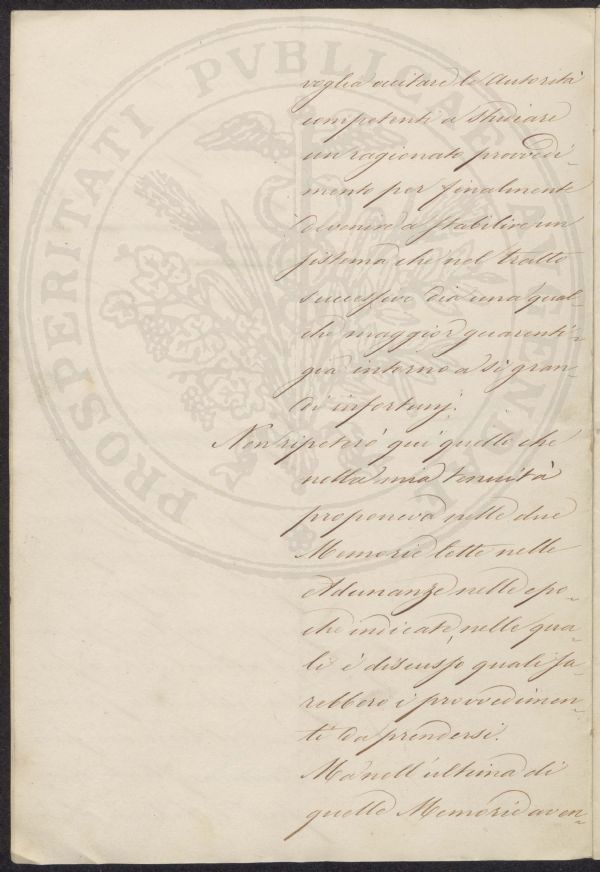 PROSPERITATI PVBLICAE AVGENDAE
voglia eccitare le Autorità
competenti a studiare
un ragionato provvedi-
mento per finalmente
devenire a stabilire un
sistema che nel tratto
successivo dia una qual-
che maggior guarenti-
gia intorno a sì gran-
di infortunj.
Non ripeterò quì quello che
nella mia tenuità
proponeva nelle due
Memorie lette nelle
Adunanze nelle epo-
che indicate, nelle qua-
li è discusso quali sa-
rebbero i provvedimen-
ti da prendersi.
Ma nell'ultima di
quelle Memorie aven-